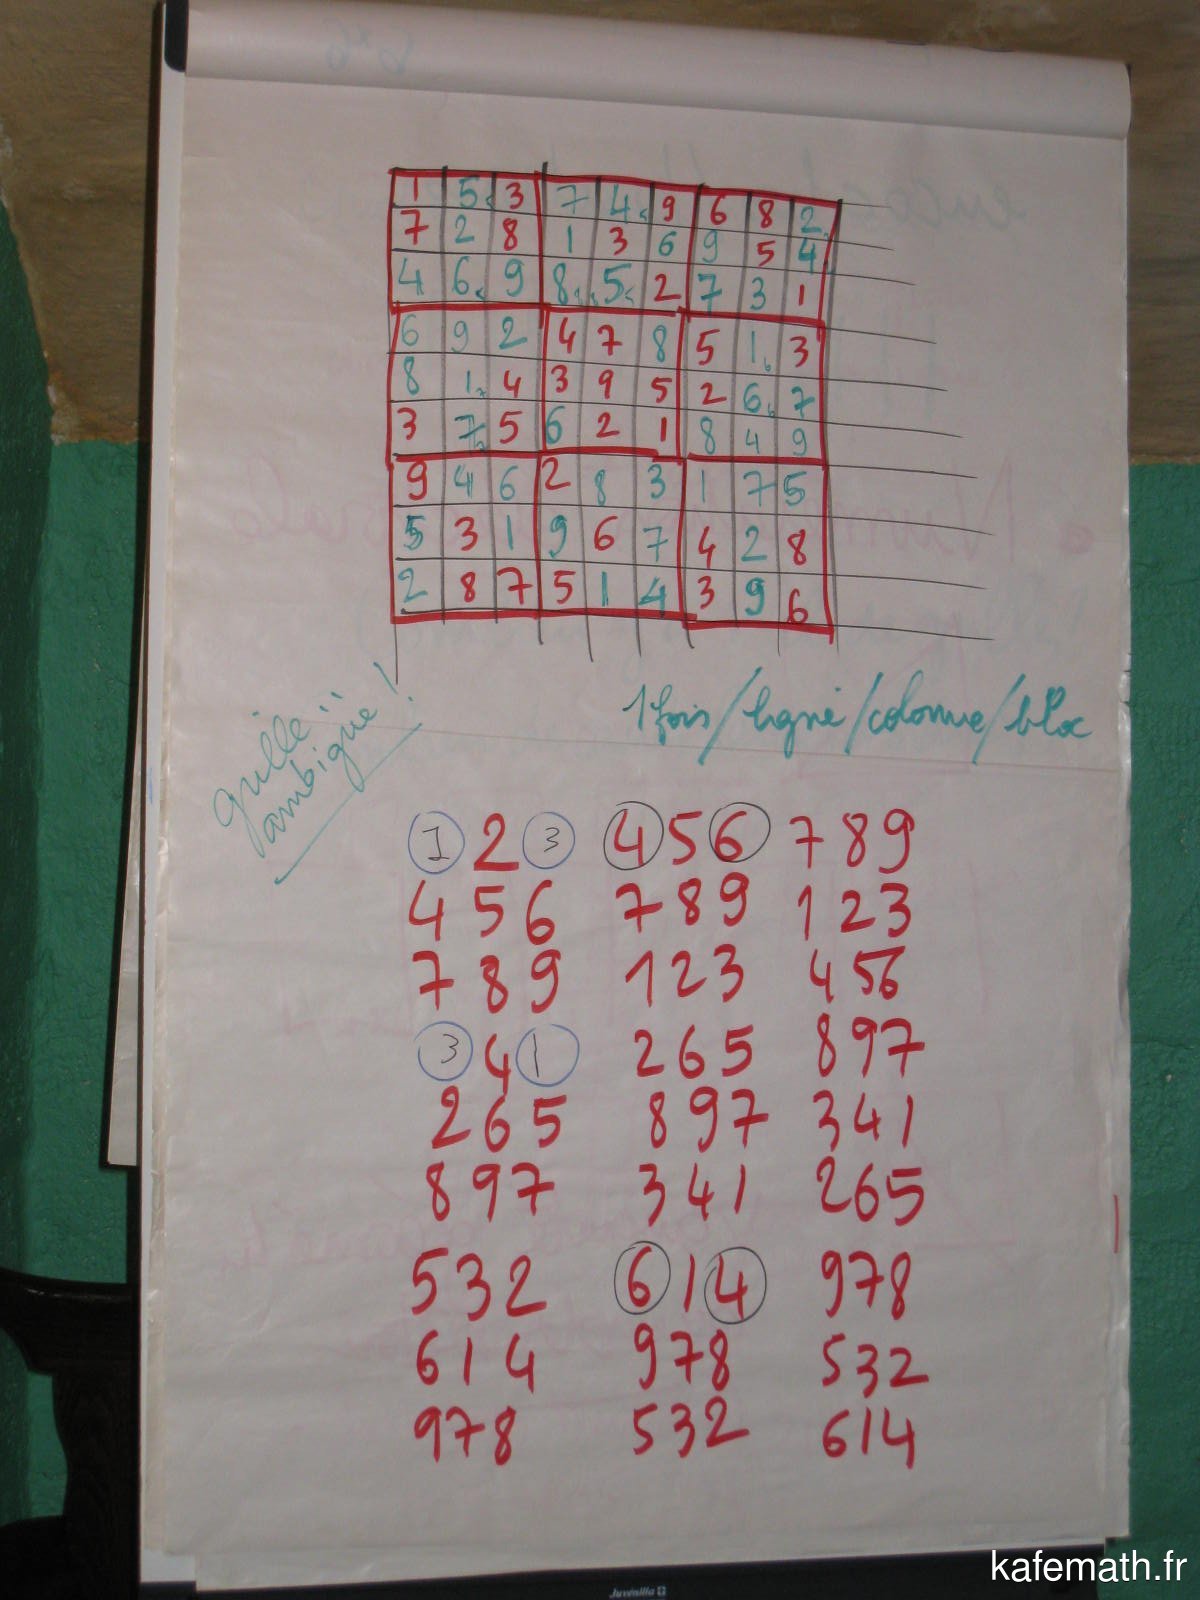 1 5 3 7 4 9 6 8 2
7 2 8 1 3 6 9 5 4
4 6 9 8 5 2 7 3 1
6 9 2 4 7 8 5 1 3
8 1 4 3 9 5 2 6 7
3 7 5 6 2 1 8 4 9
9 4 6 2 8 3 1 7 5
5 3 1 9 6 7 4 2 8
2 8 7 5 1 4 3 9 6
grille
ambiguë!
1 fois/ligne/colonne/bloc
1 2 3 4 5 6 7 8 9
4 5 6 7 8 9 1 2 3
7 8 9 1 2 3 4 5 6
3 4 1 2 6 5 8 9 7
2 6 5 8 9 7 3 4 1
8 9 7 3 4 1 2 6 5
5 3 2 6 1 4 9 7 8
6 1 4 9 7 8 5 3 2
9 7 8 5 3 2 6 1 4
Juvénilia
kafemath.fr